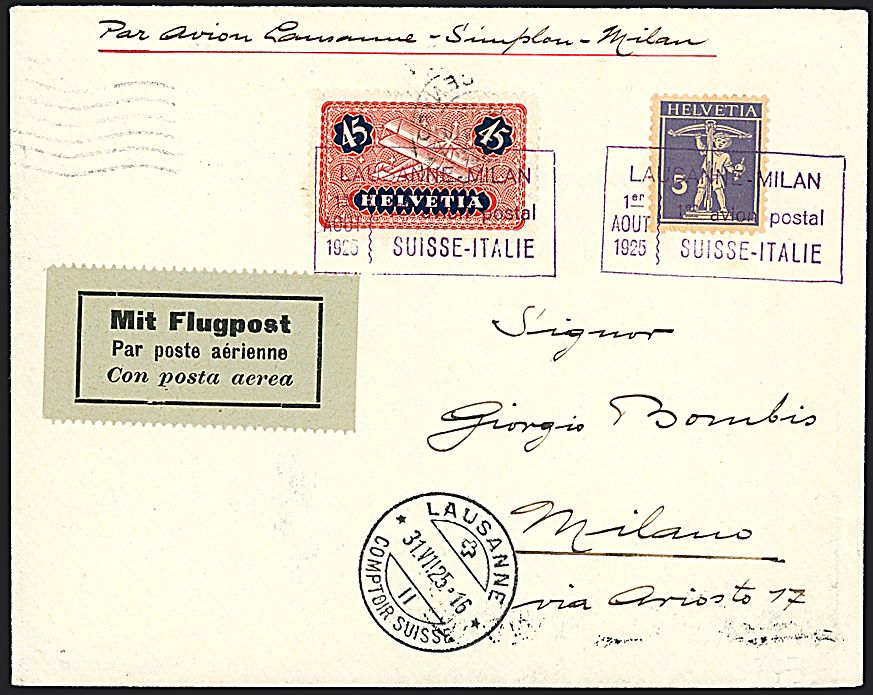 Par Avion Lausanne - Simplon - Milan
45 45
HELVETIA
HELVETIA
5
LAUSANNE-MILAN
1er
AOUT
1925
avion postal
SUISSE-ITALIE
LAUSANNE-MILAN
1er
AOUT
1925
1er avion postal
SUISSE-ITALIE
Mit Flugpost
Par poste aérienne
Con posta aerea
Signor
Giorgio Bombis
Milano
via Ariosto 17
LAUSANNE
31.VII.25.-16
II
COMPTOIR SUISSE